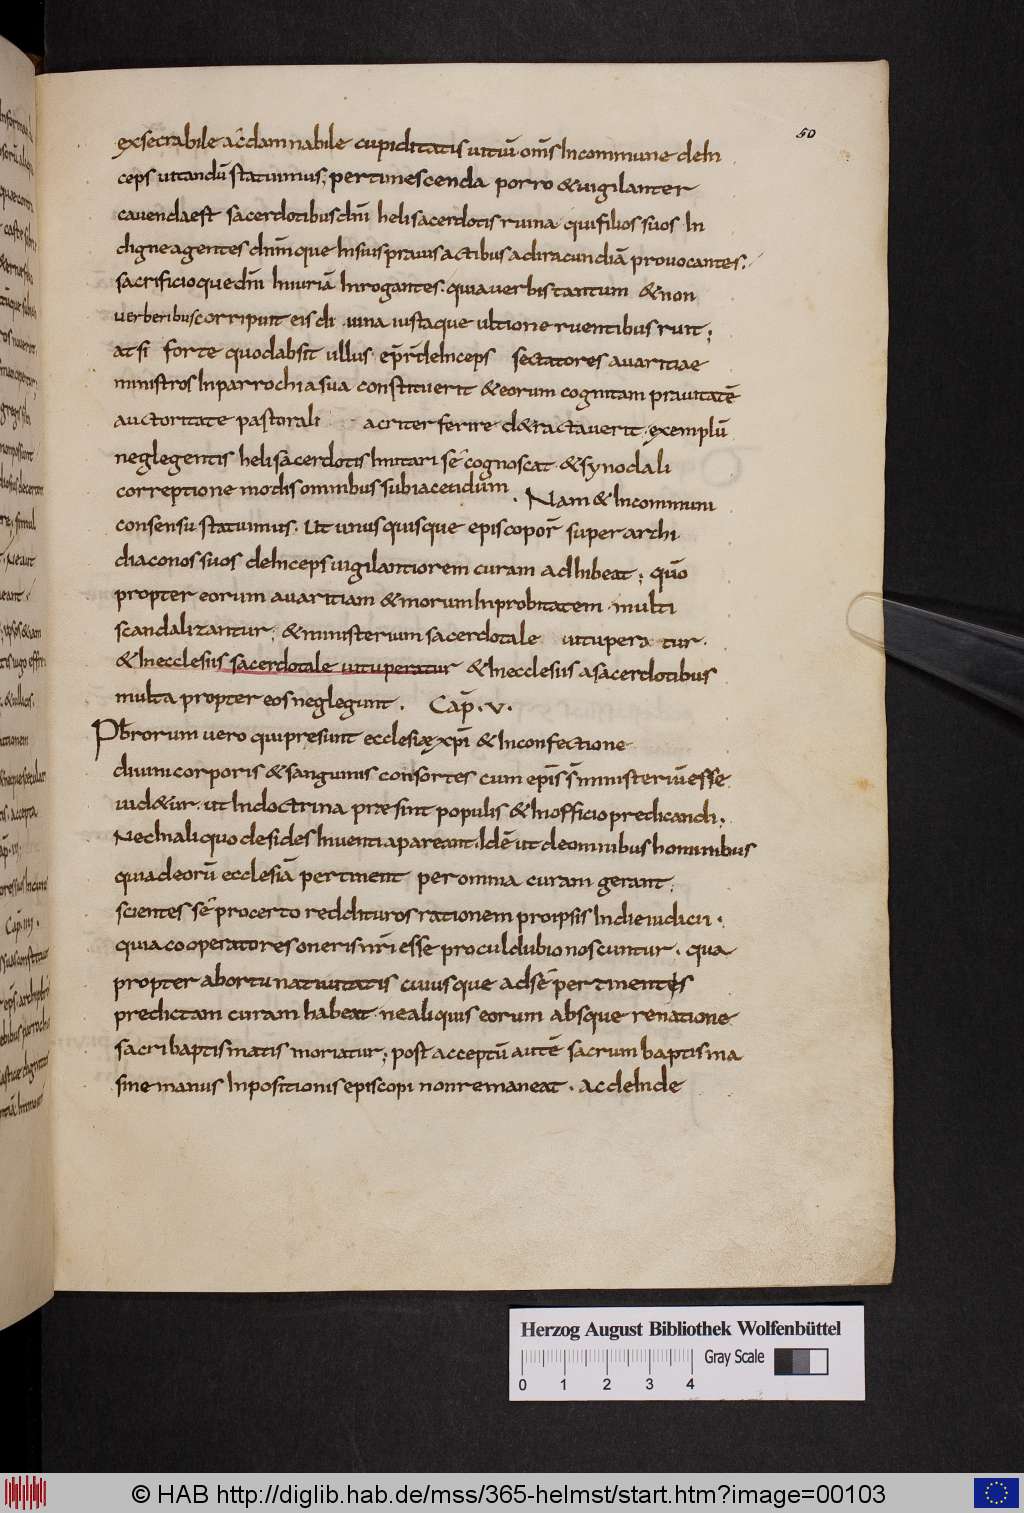 50
exsecrabile ac̄ damnabile cupiditatis uitiū. om̄s Incommune dein
ceps uitandū statuimus; pertimescenda porro & uigilanter
cauenda est sacerdotibus dn̄i heli sacerdotis ruina qui filios suos In
digne agentes dn̄m que Insuis prauis actibus ad iracundiā prouocantes.
sacrificioque dn̄i Iniuriā Inrogantes. quia uerbis tantum & non
uerberibus corripuit eis diuina iustaque ultione ruentibus ruit;
at si forte quod absit ullus ep̄r̄ deInceps sectatores auaritiae
ministros Inparrochia sua constituerit & eorum cognitam prauitatē
auctoritate pastorali acriter ferire d&ractauerit. exemplū
neglegentis heli sacerdotis Imitari sē cognoscat. & synodali
correptione modis omnibus subiacendum. Nam & Incommuni
consensu statuimus. Ut unusquisque episcopor̄ super archi
diaconos suos deInceps uigilantiorem curam adhibeat; quō
propter eorum auaritiam & morum Inprobitatem. multi
scandalizantur; & ministerium sacerdotale uitupera tur.
& Inecclesiis sacerdotale uituperatur & Inecclesiis a sacerdotibus
multa propter eos neglegunt. Cap̄. v.
Pb̄rorum uero qui presunt ecclesiæ xp̄i & Inconfectione
diuini corporis & sanguinis consortes cum ep̄is s̄ ministeriū esse
uid&ur. ut Indoctrina præsint populis & Inofficio predicandi;
Nec Inaliquo desides Inuenti apareant. Idē ut de omnibus hominibus
qui ad eorū ecclesiā pertinent per omnia curam gerant;
scientes sē pro certo reddituros rationem pro ipsis Indie iudicii.
quia cooperatores oneris nr̄i esse procul dubio noscuntur. qua
propter abortu natiuitatis cuiusque ad sē pertinentes
predictam curam habeat. ne aliquis eorum absque renatione
sacri baptismatis moriatur; post acceptū autē sacrum baptisma
sine manus Inpositionis episcopi non remaneat. ac deInde
Herzog August Bibliothek Wolfenbüttel
Gray Scale
0 1 2 3 4
© HAB http://diglib.hab.de/mss/365-helmst/start.htm?image=00103